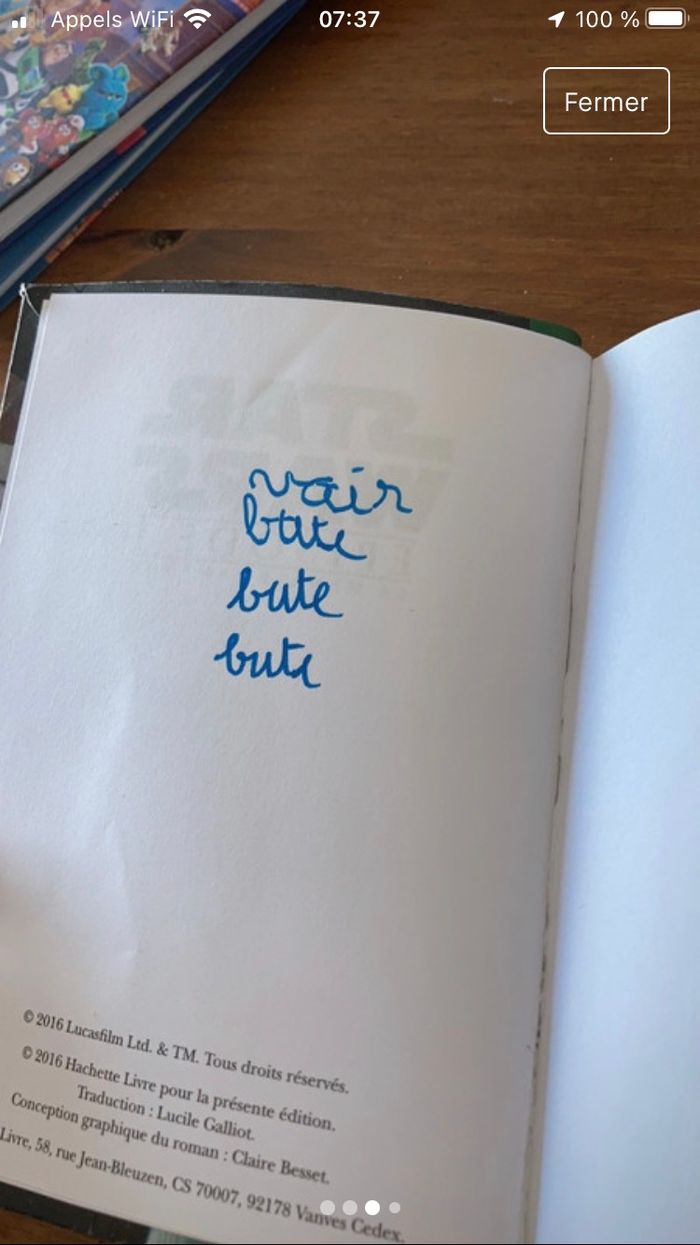 Appels WiFi 07:37 100 %
Fermer
STAR
WARS
vair
bate
bute
bute
© 2016 Lucasfilm Ltd. & TM. Tous droits réservés.
© 2016 Hachette Livre pour la présente édition.
Traduction : Lucile Galliot.
Conception graphique du roman : Claire Besset.
Livre, 58, rue Jean-Bleuzen, CS 70007, 92178 Vanves Cedex.